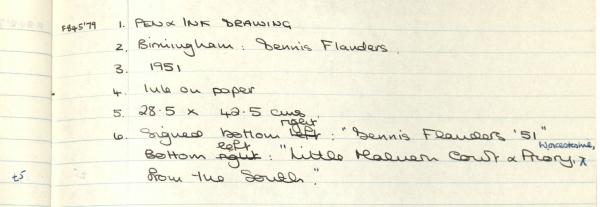 F845'79 1. PEN & INK DRAWING
2. Birmingham: Dennis Flanders.
3. 1951
4. Ink on paper
5. 28.5 x 42.5 cms
6. Signed bottom left right: "Dennis Flanders '51"
Bottom right left: "Little Malvern Court & Priory, Worcestershire,
£5 from the South."